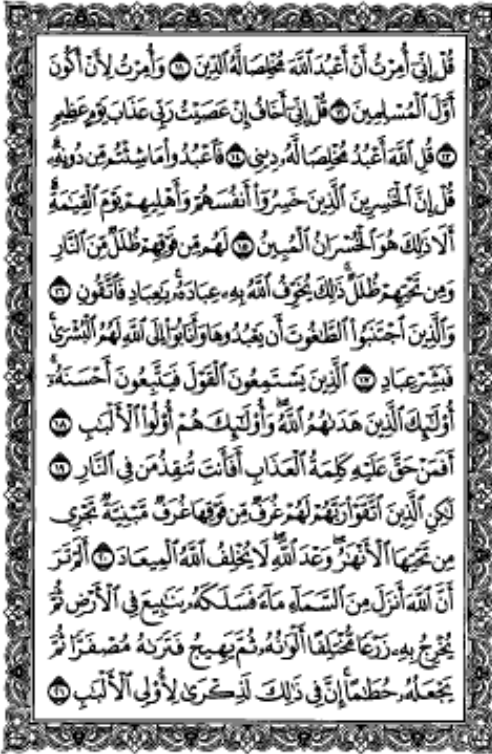 قُلْ إِنِّىٓ أُمِرْتُ أَنْ أَعْبُدَ ٱللَّهَ مُخْلِصًا لَّهُ ٱلدِّينَ ١١ وَأُمِرْتُ لِأَنْ أَكُونَ
أَوَّلَ ٱلْمُسْلِمِينَ ١٢ قُلْ إِنِّىٓ أَخَافُ إِنْ عَصَيْتُ رَبِّى عَذَابَ يَوْمٍ عَظِيمٍ
١٣ قُلِ ٱللَّهَ أَعْبُدُ مُخْلِصًا لَّهُۥ دِينِى ١٤ فَٱعْبُدُوا۟ مَا شِئْتُم مِّن دُونِهِۦۗ
قُلْ إِنَّ ٱلْخَـٰسِرِينَ ٱلَّذِينَ خَسِرُوٓا۟ أَنفُسَهُمْ وَأَهْلِيهِمْ يَوْمَ ٱلْقِيَـٰمَةِۗ
أَلَا ذَٰلِكَ هُوَ ٱلْخُسْرَانُ ٱلْمُبِينُ ١٥ لَهُم مِّن فَوْقِهِمْ ظُلَلٌ مِّنَ ٱلنَّارِ
وَمِن تَحْتِهِمْ ظُلَلٌۚ ذَٰلِكَ يُخَوِّفُ ٱللَّهُ بِهِۦ عِبَادَهُۥۚ يَـٰعِبَادِ فَٱتَّقُونِ ١٦
وَٱلَّذِينَ ٱجْتَنَبُوا۟ ٱلطَّـٰغُوتَ أَن يَعْبُدُوهَا وَأَنَابُوٓا۟ إِلَى ٱللَّهِ لَهُمُ ٱلْبُشْرَىٰۚ
فَبَشِّرْ عِبَادِ ١٧ ٱلَّذِينَ يَسْتَمِعُونَ ٱلْقَوْلَ فَيَتَّبِعُونَ أَحْسَنَهُۥٓۚ
أُو۟لَـٰٓئِكَ ٱلَّذِينَ هَدَىٰهُمُ ٱللَّهُۖ وَأُو۟لَـٰٓئِكَ هُمْ أُو۟لُوا۟ ٱلْأَلْبَـٰبِ ١٨
أَفَمَنْ حَقَّ عَلَيْهِ كَلِمَةُ ٱلْعَذَابِ أَفَأَنتَ تُنقِذُ مَن فِى ٱلنَّارِ ١٩
لَـٰكِنِ ٱلَّذِينَ ٱتَّقَوْا۟ رَبَّهُمْ لَهُمْ غُرَفٌ مِّن فَوْقِهَا غُرَفٌ مَّبْنِيَّةٌ تَجْرِى
مِن تَحْتِهَا ٱلْأَنْهَـٰرُۖ وَعْدَ ٱللَّهِۖ لَا يُخْلِفُ ٱللَّهُ ٱلْمِيعَادَ ٢٠ أَلَمْ تَرَ
أَنَّ ٱللَّهَ أَنزَلَ مِنَ ٱلسَّمَآءِ مَآءً فَسَلَكَهُۥ يَنَـٰبِيعَ فِى ٱلْأَرْضِ ثُمَّ
يُخْرِجُ بِهِۦ زَرْعًا مُّخْتَلِفًا أَلْوَٰنُهُۥ ثُمَّ يَهِيجُ فَتَرَىٰهُ مُصْفَرًّا ثُمَّ
يَجْعَلُهُۥ حُطَـٰمًاۚ إِنَّ فِى ذَٰلِكَ لَذِكْرَىٰ لِأُو۟لِى ٱلْأَلْبَـٰبِ ٢١